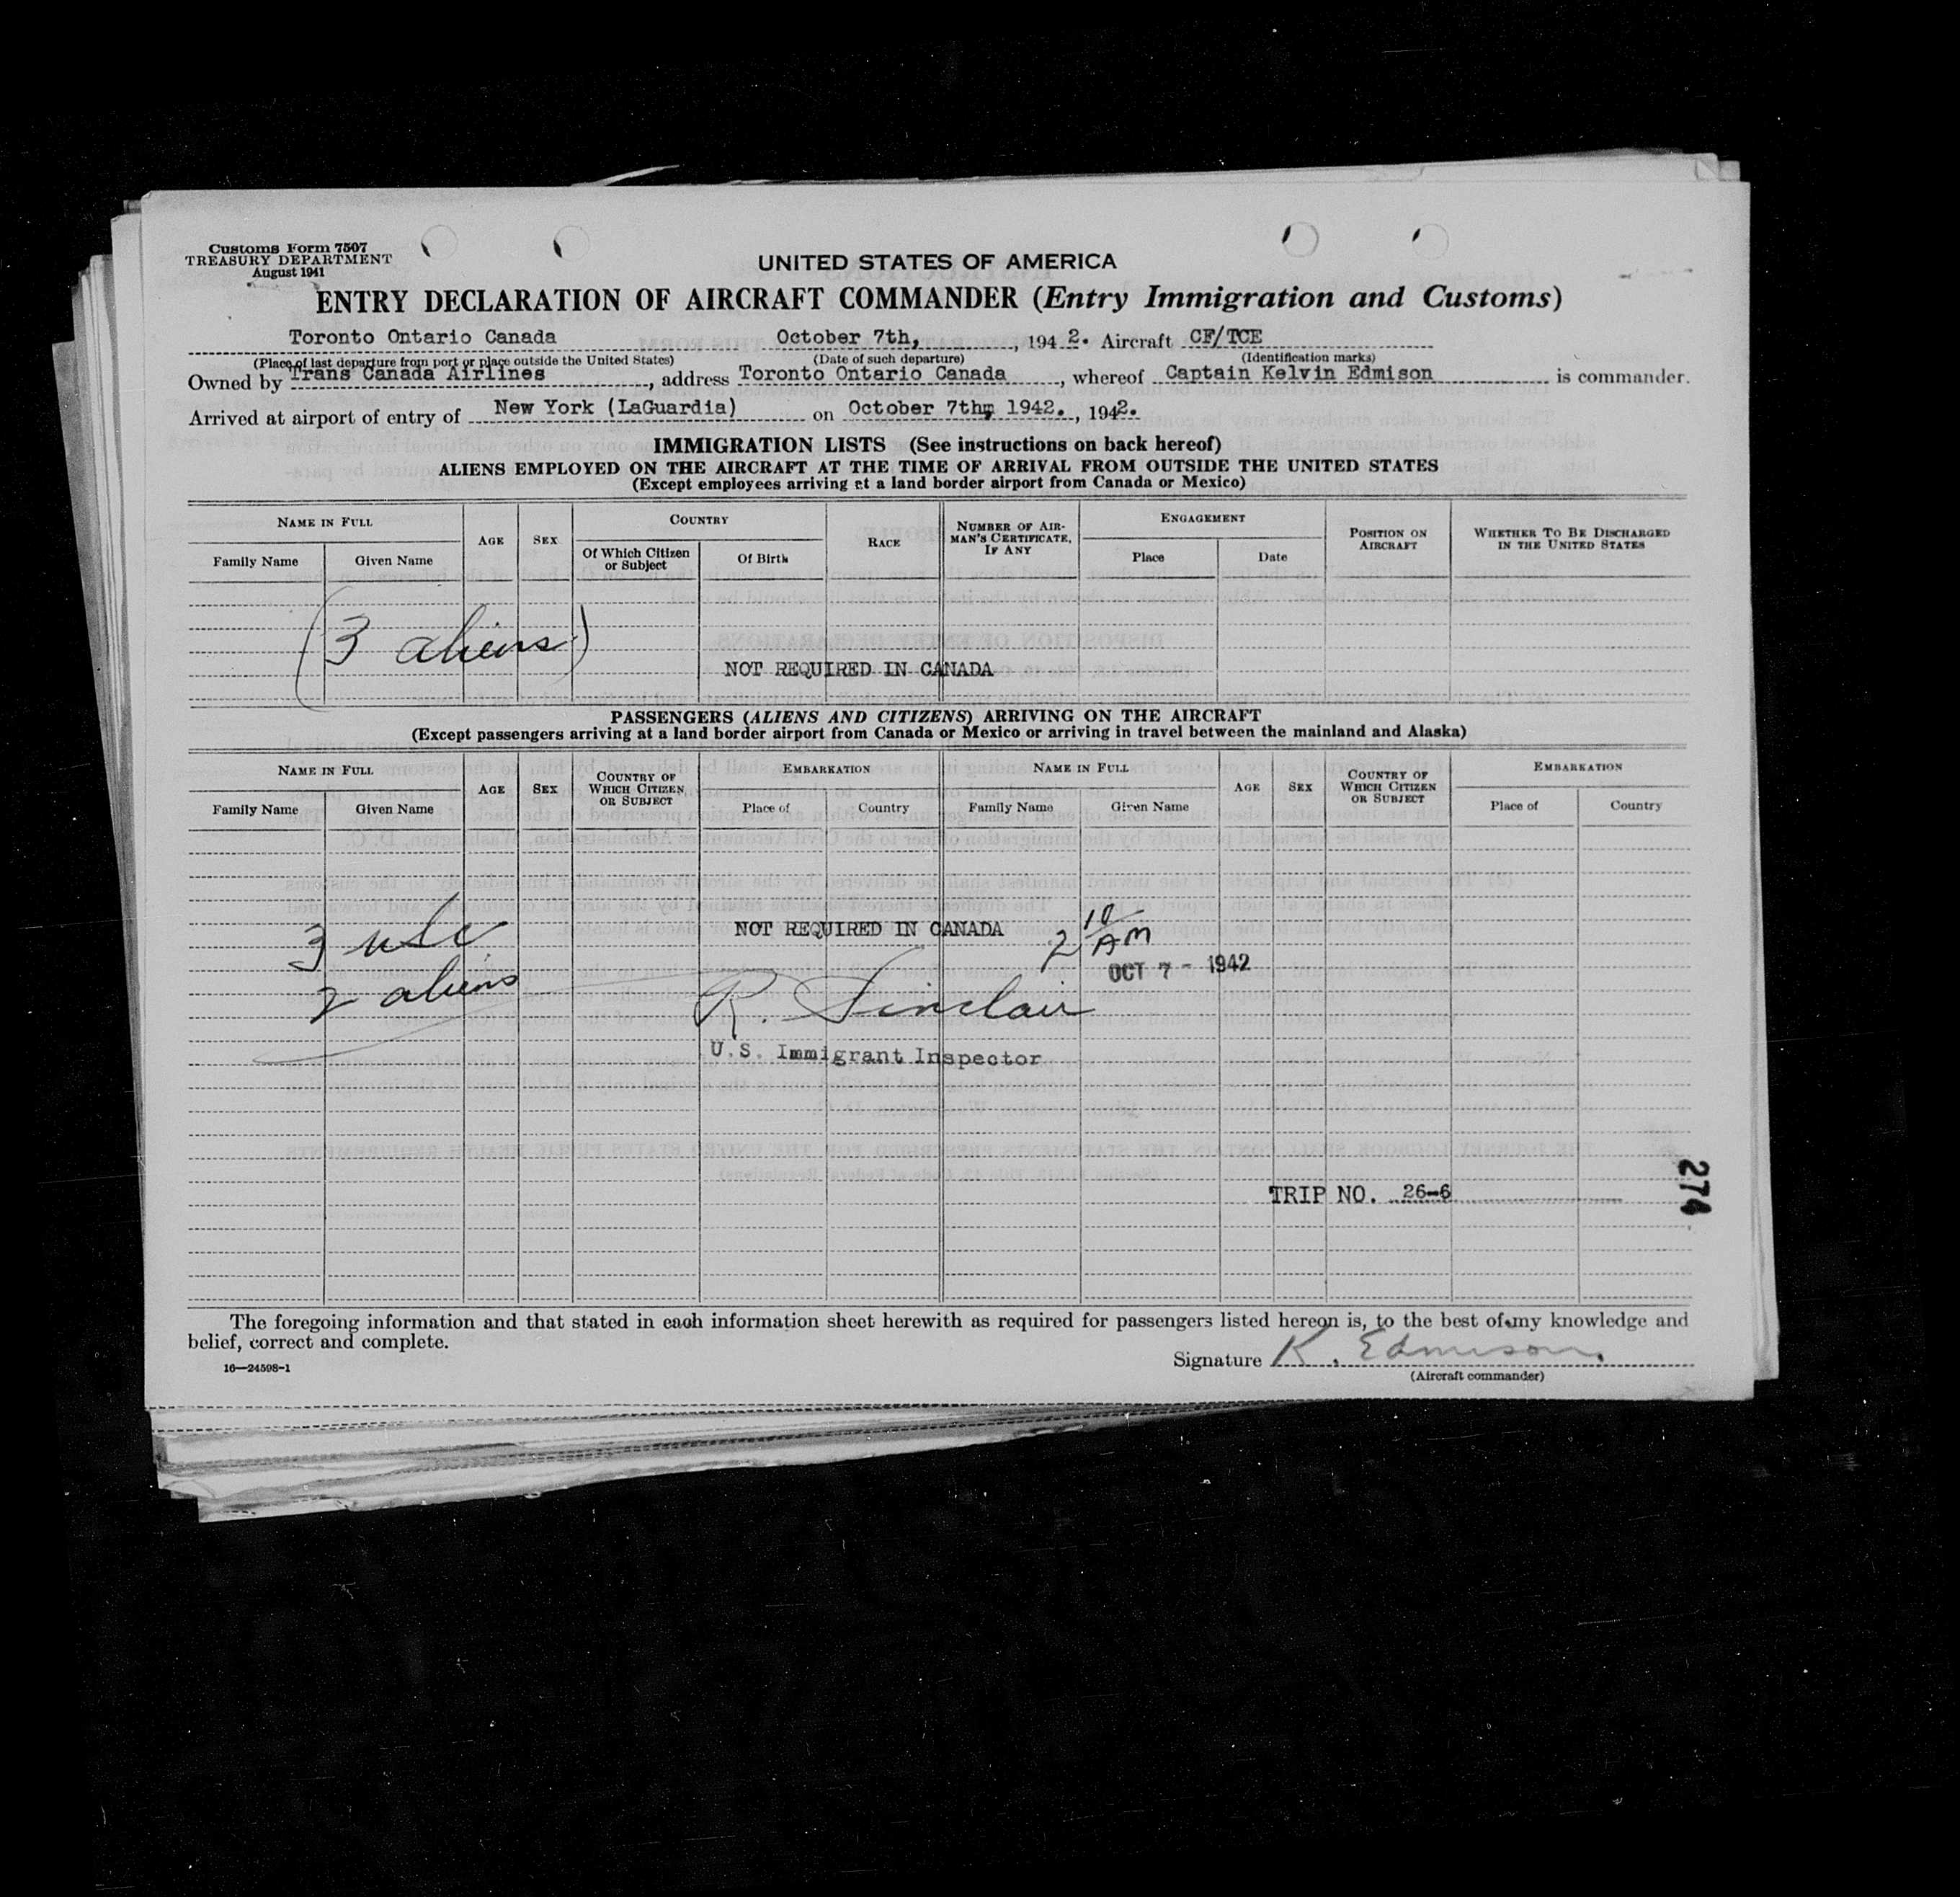 Customs Form 7507
TREASURY DEPARTMENT
August 1941
UNITED STATES OF AMERICA
ENTRY DECLARATION OF AIRCRAFT COMMANDER (Entry Immigration and Customs)
Toronto Ontario Canada October 7th, , 194 2. Aircraft CF/TCE
(Place of last departure from port or place outside the United States) (Date of such departure) (Identification marks)
Owned by Trans Canada Airlines , address Toronto Ontario Canada , whereof Captain Kelvin Edmison is commander.
Arrived at airport of entry of New York (LaGuardia) on October 7th, 1942. , 1942.
IMMIGRATION LISTS (See instructions on back hereof)
ALIENS EMPLOYED ON THE AIRCRAFT AT THE TIME OF ARRIVAL FROM OUTSIDE THE UNITED STATES
(Except employees arriving at a land border airport from Canada or Mexico)
NAME IN FULL AGE SEX COUNTRY RACE NUMBER OF AIRMAN'S CERTIFICATE, IF ANY ENGAGEMENT POSITION ON AIRCRAFT WHETHER TO BE DISCHARGED IN THE UNITED STATES
Family Name Given Name Of Which Citizen or Subject Of Birth Place Date
(3 aliens)
NOT REQUIRED IN CANADA
PASSENGERS (ALIENS AND CITIZENS) ARRIVING ON THE AIRCRAFT
(Except passengers arriving at a land border airport from Canada or Mexico or arriving in travel between the mainland and Alaska)
NAME IN FULL AGE SEX COUNTRY OF WHICH CITIZEN OR SUBJECT EMBARKATION NAME IN FULL AGE SEX COUNTRY OF WHICH CITIZEN OR SUBJECT EMBARKATION
Family Name Given Name Place of Country Family Name Given Name Place of Country
3 usc NOT REQUIRED IN CANADA 2 10 AM
2 aliens OCT 7 - 1942
R. Sinclair
U.S. Immigrant Inspector
TRIP NO. 26-6
274
The foregoing information and that stated in each information sheet herewith as required for passengers listed hereon is, to the best of my knowledge and
belief, correct and complete.
16—24598-1
Signature K. Edmison.
(Aircraft commander)